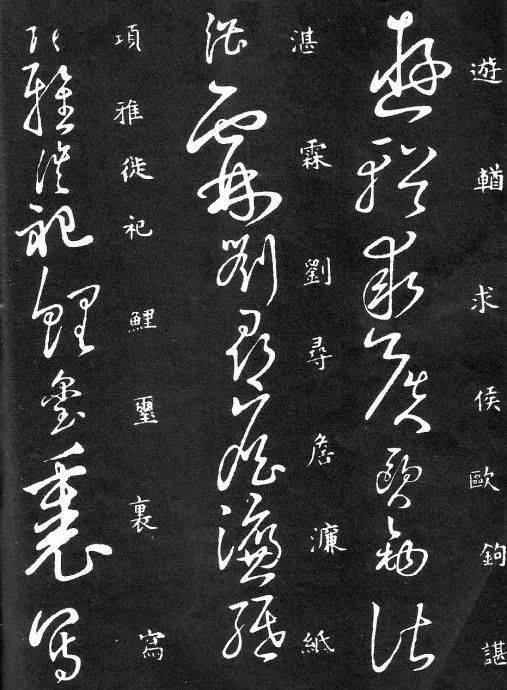 遊輶求侯歐鉤諶
湛霖劉尋詹濂紙
項雅徙祀鯉璽裏寫